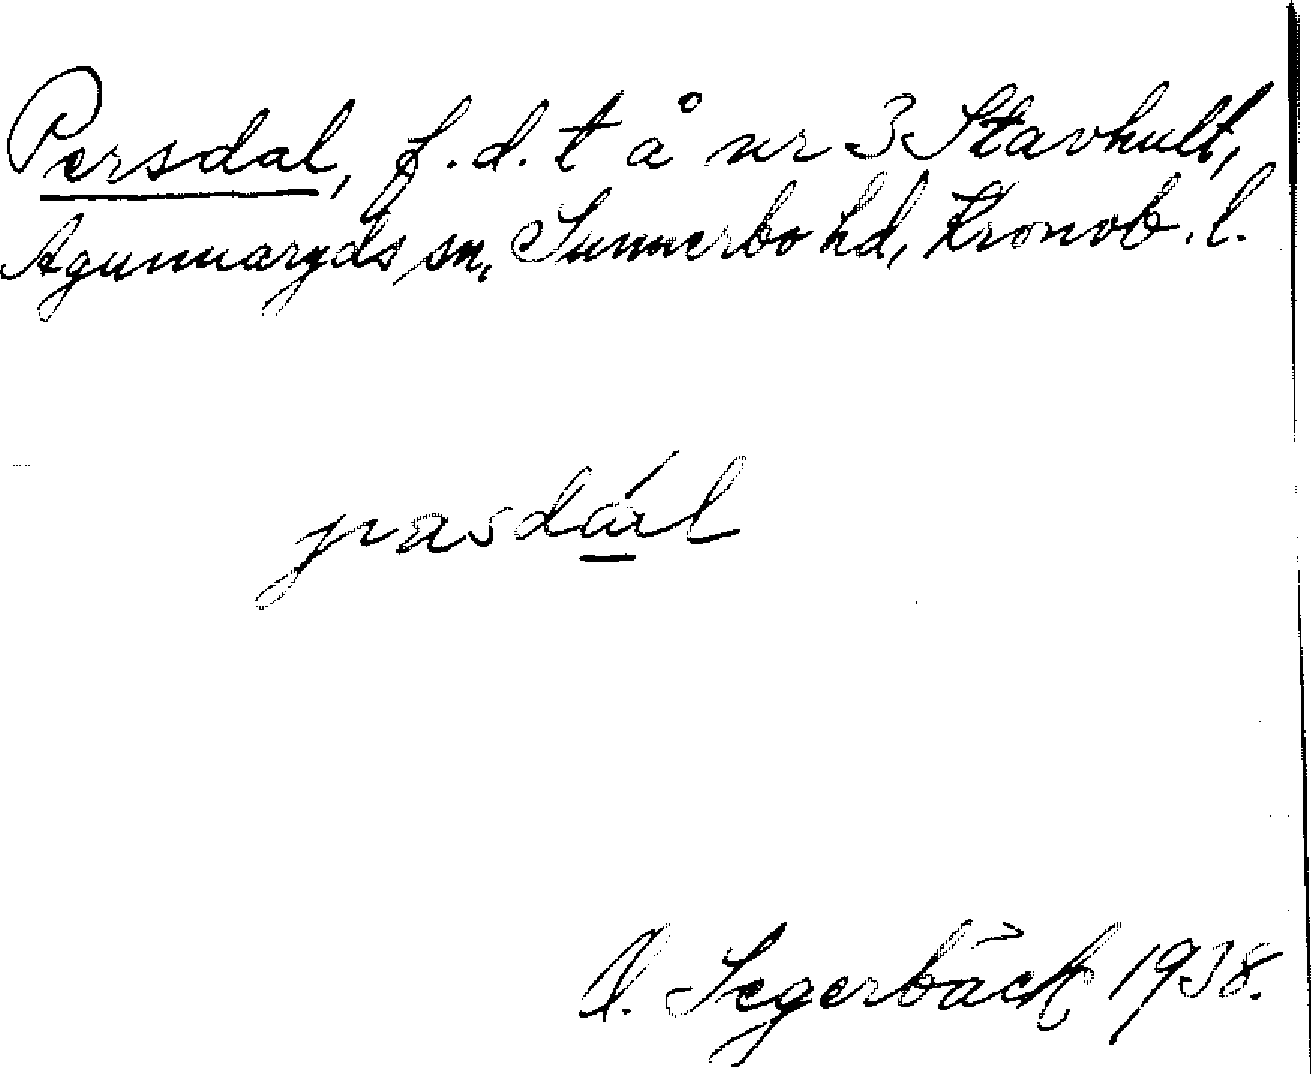 Persdal, f.d. t å nr 3 Stavhult,
Agunnaryds sn, Sunnerbo hd, Kronob. l.
pasdál
Segerbäck 1938.